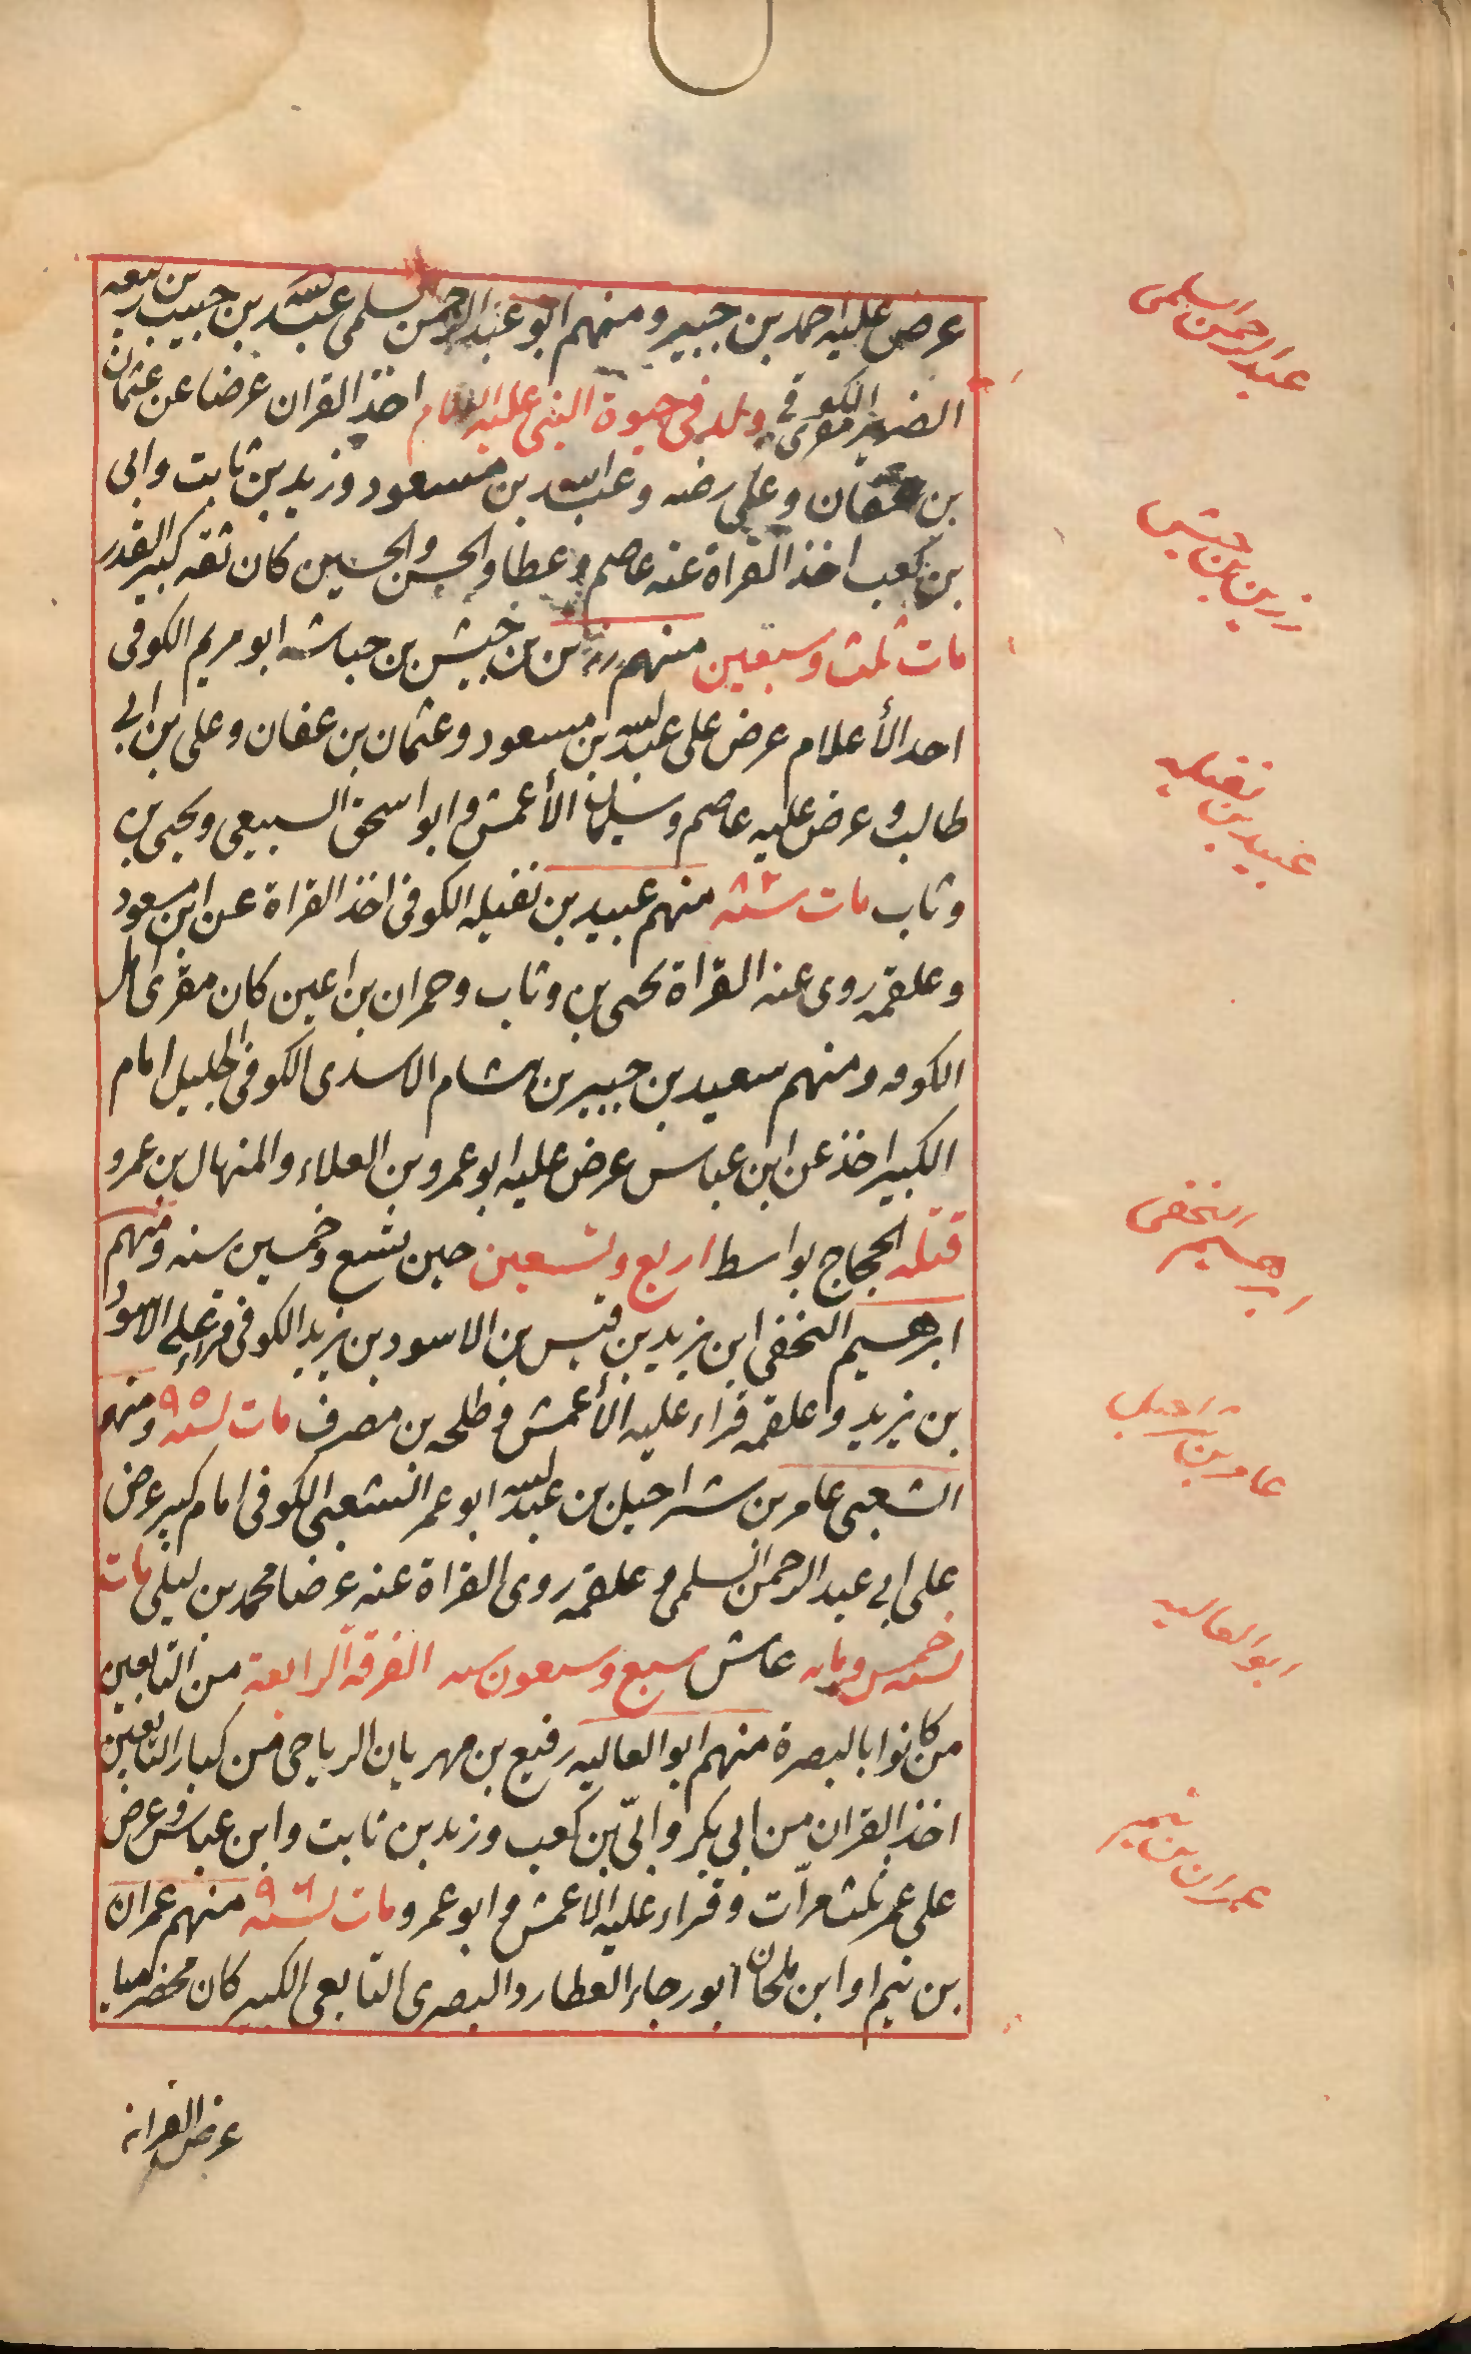 عرض عليه احمد بن جبير ومنهم ابو عبد الرحمن سلمى عبد الله بن حبيب بن ربيعه
الضرير مقرى الكوفى ولد فى حيوة النبى عليه السلام اخذ القران عرضا عن عثمان
بن عفان وعلى رضه وعبد الله بن مسعود وزيد بن ثابت وابى
بن كعب اخذ القراة عنه عاصم وعطا والحسن والحسين كان ثقه كبير القدر
مات ثلث وسبعين منهم زرين بن حبيش بن حباشه ابو مريم الكوفى
احد الأعلام عرض على عبد الله بن مسعود وعثمان بن عفان وعلى بن ابى
طالب و عرض عليه عاصم وسليمان الأعمش و ابو اسحق السبيعى ويحيى بن
وثاب مات سنه ٨٢ منهم عبيد بن نفيله الكوفى اخذ القراة عن ابن مسعود
وعلقمه روى عنه القراة يحيى بن وثاب وحمران بن اعين كان مقرى اهل
الكوفه ومنهم سعيد بن جبير بن هشام الاسدى الكوفى الجليل امام
الكبير اخذ عن ابن عباس عرض عليه ابو عمرو بن العلاء والمنهال بن عمرو
قتله الحجاج بواسط اربع وتسعين حين تسع وخمسين سنه ومنهم
ابرهسيم النخفى ابن يزيد بن قيس بن الاسود بن يزيد الكوفى قراء على الاسود
بن يزيد وعلقمه قراء عليه الأعمش و طلحه بن مصرف مات سنه ٩٥ ومنهم
الشعبى عامر بن شراحيل بن عبد الله ابو عمر الشعبى الكوفى امام كبير عرض
على ابى عبد الرحمن السلمى و علقمه روى القراة عنه عرضا محمد بن ليلى مات
سنه خمس ومايه عاش سبع وسبعون سنه الفرقة الرابعة من التابعين
من كانوا بالبصرة منهم ابو العاليه رفيع بن مهريان الرياحى من كبار التابعين
اخذ القران من ابى بكر وابىّ بن كعب وزيد بن ثابت وابن عباس وعرض
على عمر ثلث مرّات وقراء عليه الاعمش و ابو عمرو مات سنه ٩٦ منهم عمران
بن تيم او ابن ملحان ابو رجاء العطارد البصرى التابعى الكبير كان مخضرميا
عرض القران
عبد الرحمن السلمى
زرين بن حبيش
عبيد بن نفيله
ابرهسيم النخفى
عامر بن شراحيل
ابو العاليه
عمران بن تميم